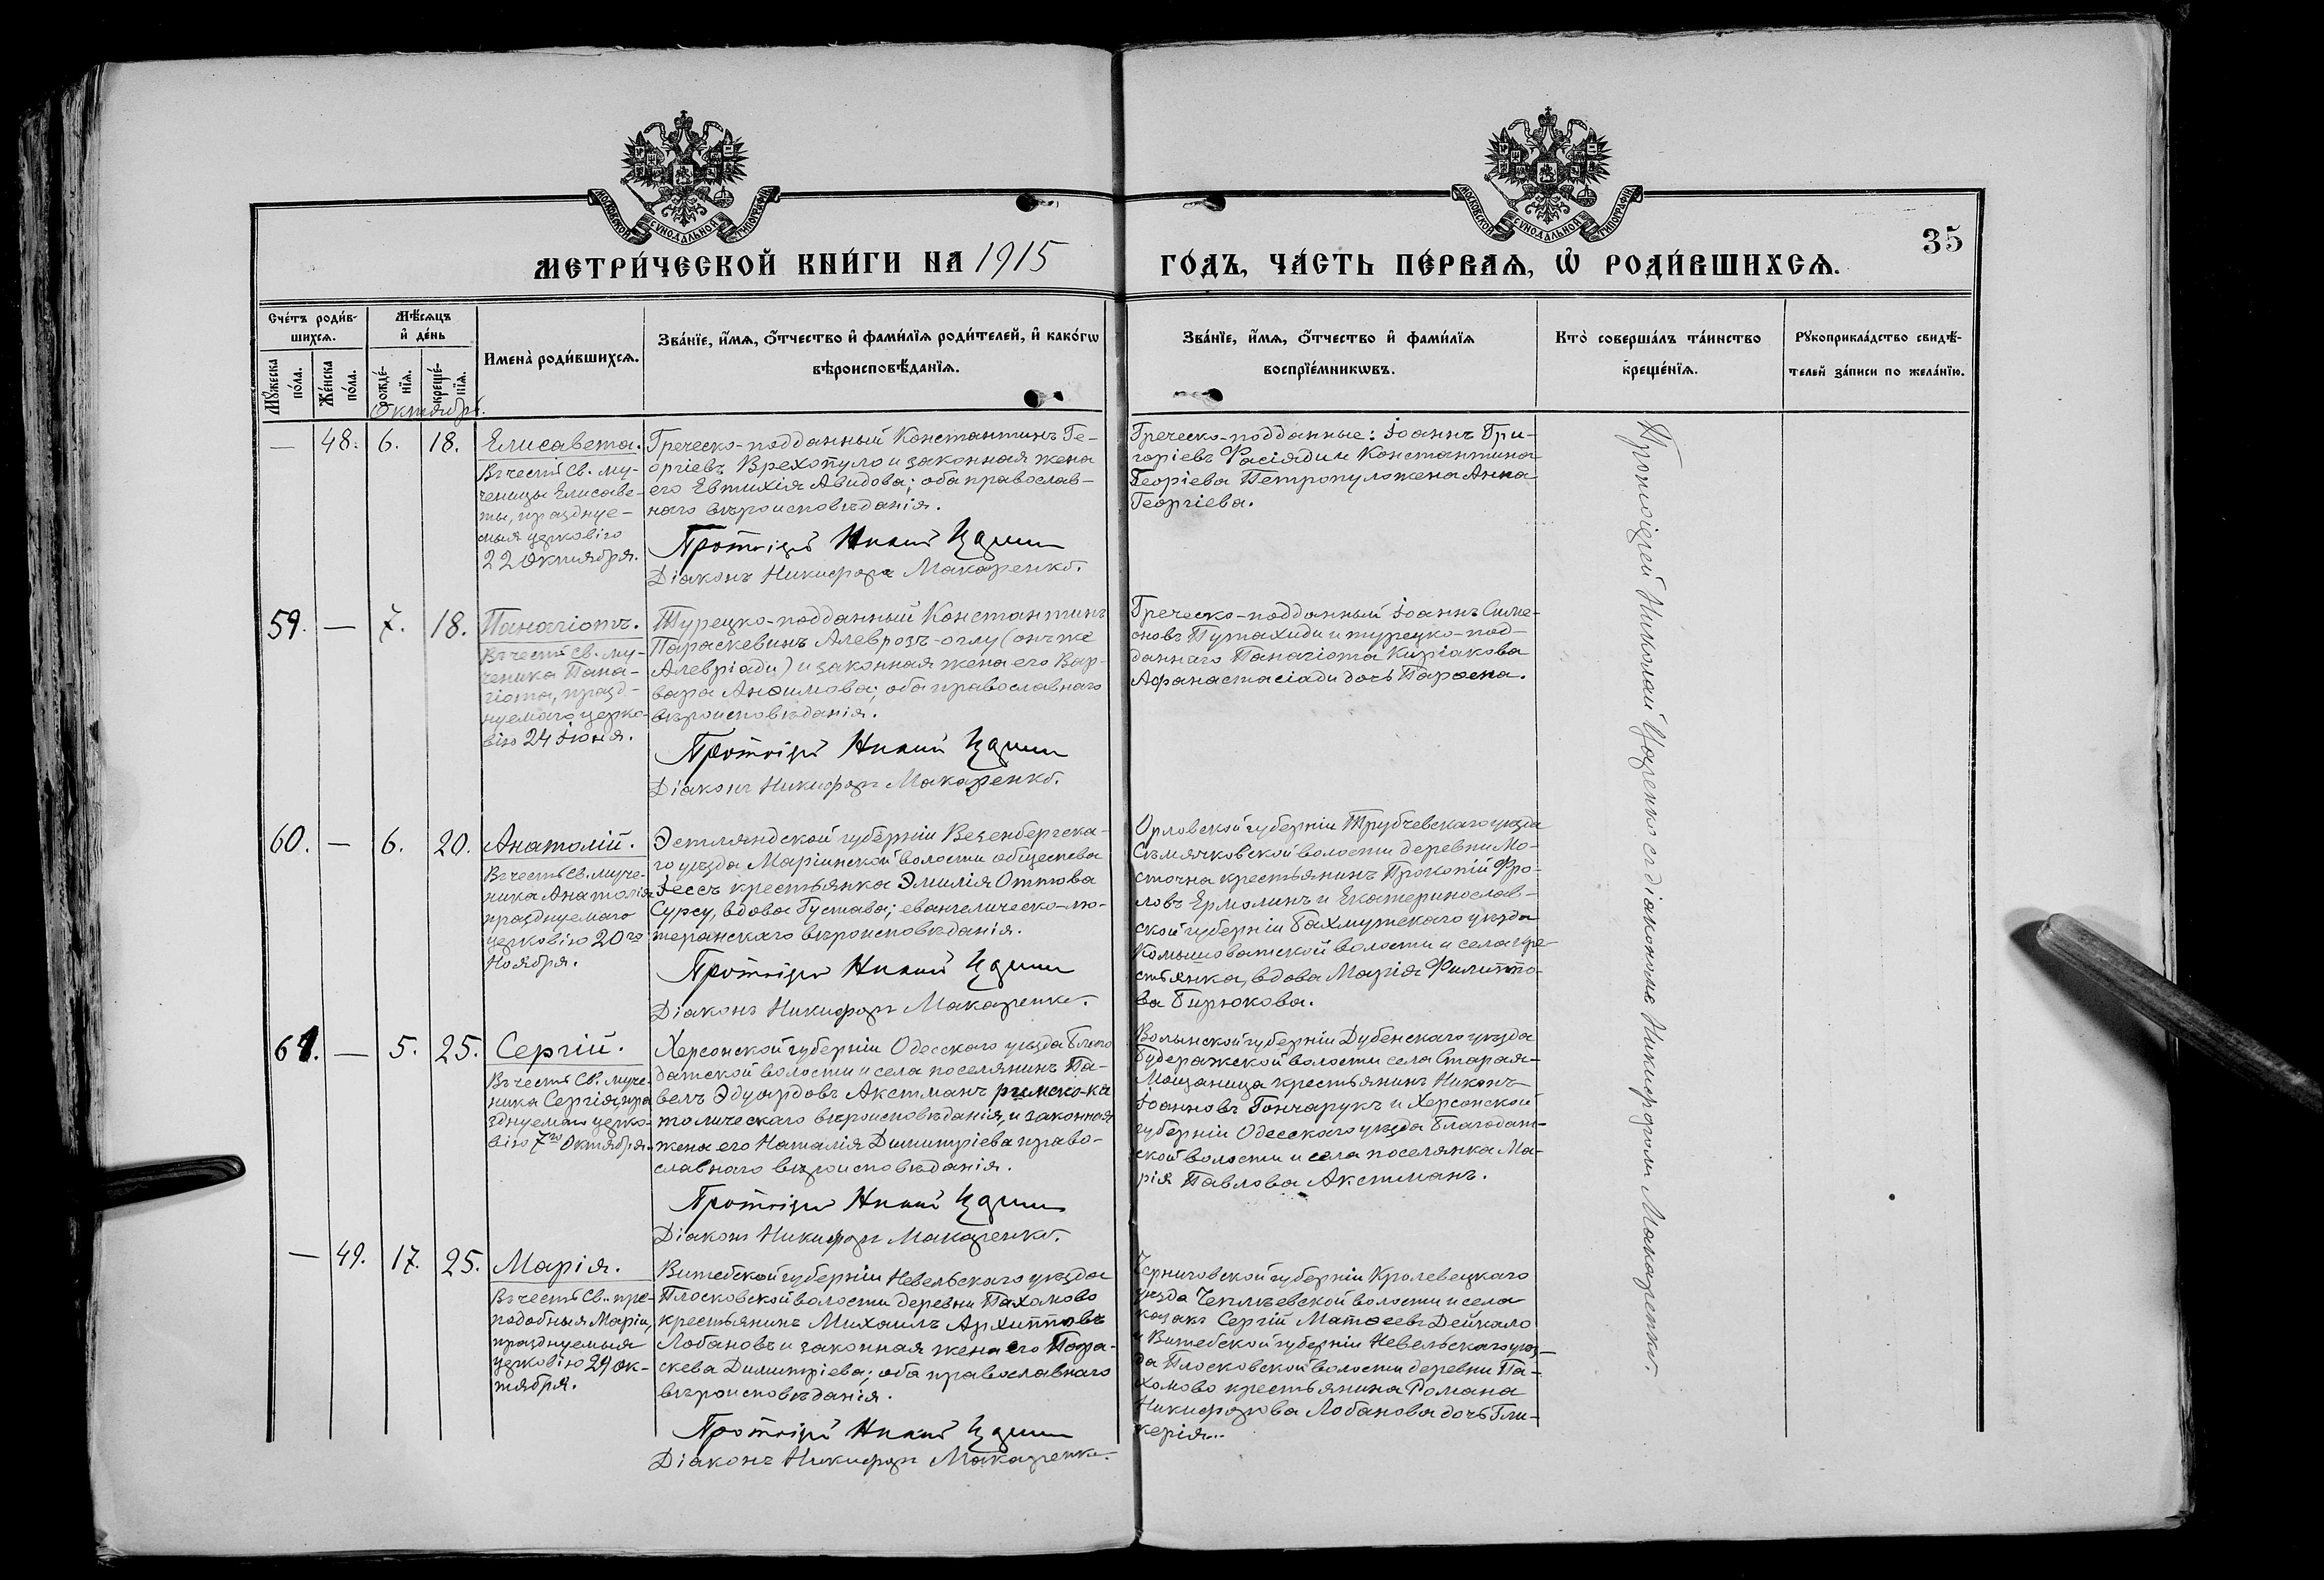 МОСКОВСКОЙ СУНОДАЛЬНОЙ ТИПОГРАФІИ
МОСКОВСКОЙ СУНОДАЛЬНОЙ ТИПОГРАФІИ
35
МЕТРИ́ЧЕСКОЙ КНИ́ГИ НА 1915
ГО́ДЪ, ЧА́СТЬ ПЕ́РВАѦ, Ѡ҆ РОДИ́ВШИХСѦ.
Сче́тъ роди́в-
шихсѧ.
Мꙋ́жеска
по́ла.
Же́нска
по́ла.
Мѣ́сѧцъ
и҆ де́нь
рожде́-
нїѧ.
креще́-
нїѧ.
Имена̀ роди́вшихсѧ.
Зва́нїе, и҆́мѧ, ѻ҆́тчество и҆ фами́лїѧ роди́телей, и҆ како́гѡ
вѣроисповѣ́данїѧ.
Зва́нїе, и҆́мѧ, ѻ҆́тчество и҆ фами́лїѧ
воспрїе́мникѡвъ.
Кто̀ соверша́лъ та́инство
креще́нїѧ.
Рꙋкоприкла́дство свидѣ́-
телей за́писи по жела́нїю.
Октябрь.
— 48. 6. 18.
Елисавета.
Въ честь Св. му-
ченицы Елисаве-
ты, празднуе-
мыя церковію
22 Октября.
Греческо-подданный Константинъ Ге-
оргіевъ Врехопуло и законная жена
его Евтихія Авидова; оба православ-
наго вѣроисповѣданія.
Протоіерей Николай Царенко
Діаконъ Никифоръ Макаренко.
Греческо-подданные: Іоаннъ Гри-
горіевъ Фасіяди и Константина
Георгіева Петропуло жена Анна
Георгіева.
59. — 7. 18.
Панагіотъ.
Въ честь Св. му-
ченика Пана-
гіота, празд-
нуемаго церко-
вію 24 Іюня.
Турецко-подданный Константинъ
Параскевинъ Алеврозъ-оглу (онъ же
Алевріади) и законная жена его Вар-
вара Анѳимова; оба православнаго
вѣроисповѣданія.
Протоіерей Николай Царенко
Діаконъ Никифоръ Макаренко.
Греческо-подданный Іоаннъ Симе-
оновъ Путахиди и турецко-под-
даннаго Панагіота Киріакова
Афанастасіади дочь Парѳена.
60. — 6. 20.
Анатолій.
Въ честь Св. муче-
ника Анатолія
празднуемаго
церковію 20го
Ноября.
Эстляндской губерніи Везенбергска-
го уѣзда Маріинской волости общества
крестьянка Эмилія Оттова
Сурсу, вдова Густава; евангелическо-лю-
теранскаго вѣроисповѣданія.
Протоіерей Николай Царенко
Діаконъ Никифоръ Макаренко.
Орловской губерніи Трубчевскаго уѣзда
Сѣмячковской волости деревни Мо-
сточна крестьянинъ Прокопій Фро-
ловъ Ермолинъ и Екатеринослав-
ской губерніи Бахмутскаго уѣзда
Комышоватской волости и села кре-
стьянка, вдова Марія Филиппо-
ва Бирюкова.
61. — 5. 25.
Сергій.
Въ честь Св. муче-
ника Сергія, пра
зднуемаго церко-
вію 7го Октября.
Херсонской губерніи Одесскаго уѣзда Благо
датской волости и села поселянинъ Па-
велъ Эдуардовъ Акстманъ римско-ка
толическаго вѣроисповѣданія, и законная
жена его Наталія Димитріева право-
славнаго вѣроисповѣданія.
Протоіерей Николай Царенко
Діаконъ Никифоръ Макаренко.
Волынской губерніи Дубенскаго уѣзда
Будеражской волости села Старая-
Мощаница крестьянинъ Никонъ
Іоанновъ Гончарукъ и Херсонской
губерніи Одесскаго уѣзда Благодат-
ской волости и села поселянка Ма-
рія Павлова Акстманъ.
— 49. 17. 25.
Марія.
Въ честь Св. пре-
подобныя Маріи,
празднуемыя
церковію 29 Ок-
тября.
Витебской губерніи Невельскаго уѣзда
Плосковской волости деревни Пахомово
крестьянинъ Михаилъ Архиповъ
Лобановъ и законная жена его Пара-
скева Димитріева; оба православнаго
вѣроисповѣданія.
Протоіерей Николай Царенко
Діаконъ Никифоръ Макаренко.
Черниговской губерніи Кролевецкаго
уѣзда Чеплѣевской волости и села
казакъ Сергій Матѳеевъ Дейкало
и Витебской губерніи Невельскаго уѣз-
да Плосковской волости деревни Па-
хомово крестьянина Романа
Никифорова Лобанова дочь Гли-
керія..
Протоіерей Николай Царенко съ діакономъ Никифоромъ Макаренко.